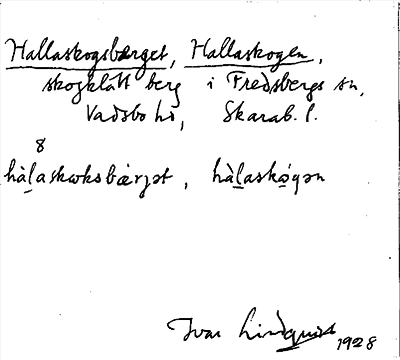 Hallaskogsbærget, Hallaskogen,
skogklätt berg i Fredsbergs sn,
Vadsbo hd, Skarab. l.
8
hàl̲askωksbærjət, hàl̲askó̲gən
Ivar Lindquist 1928